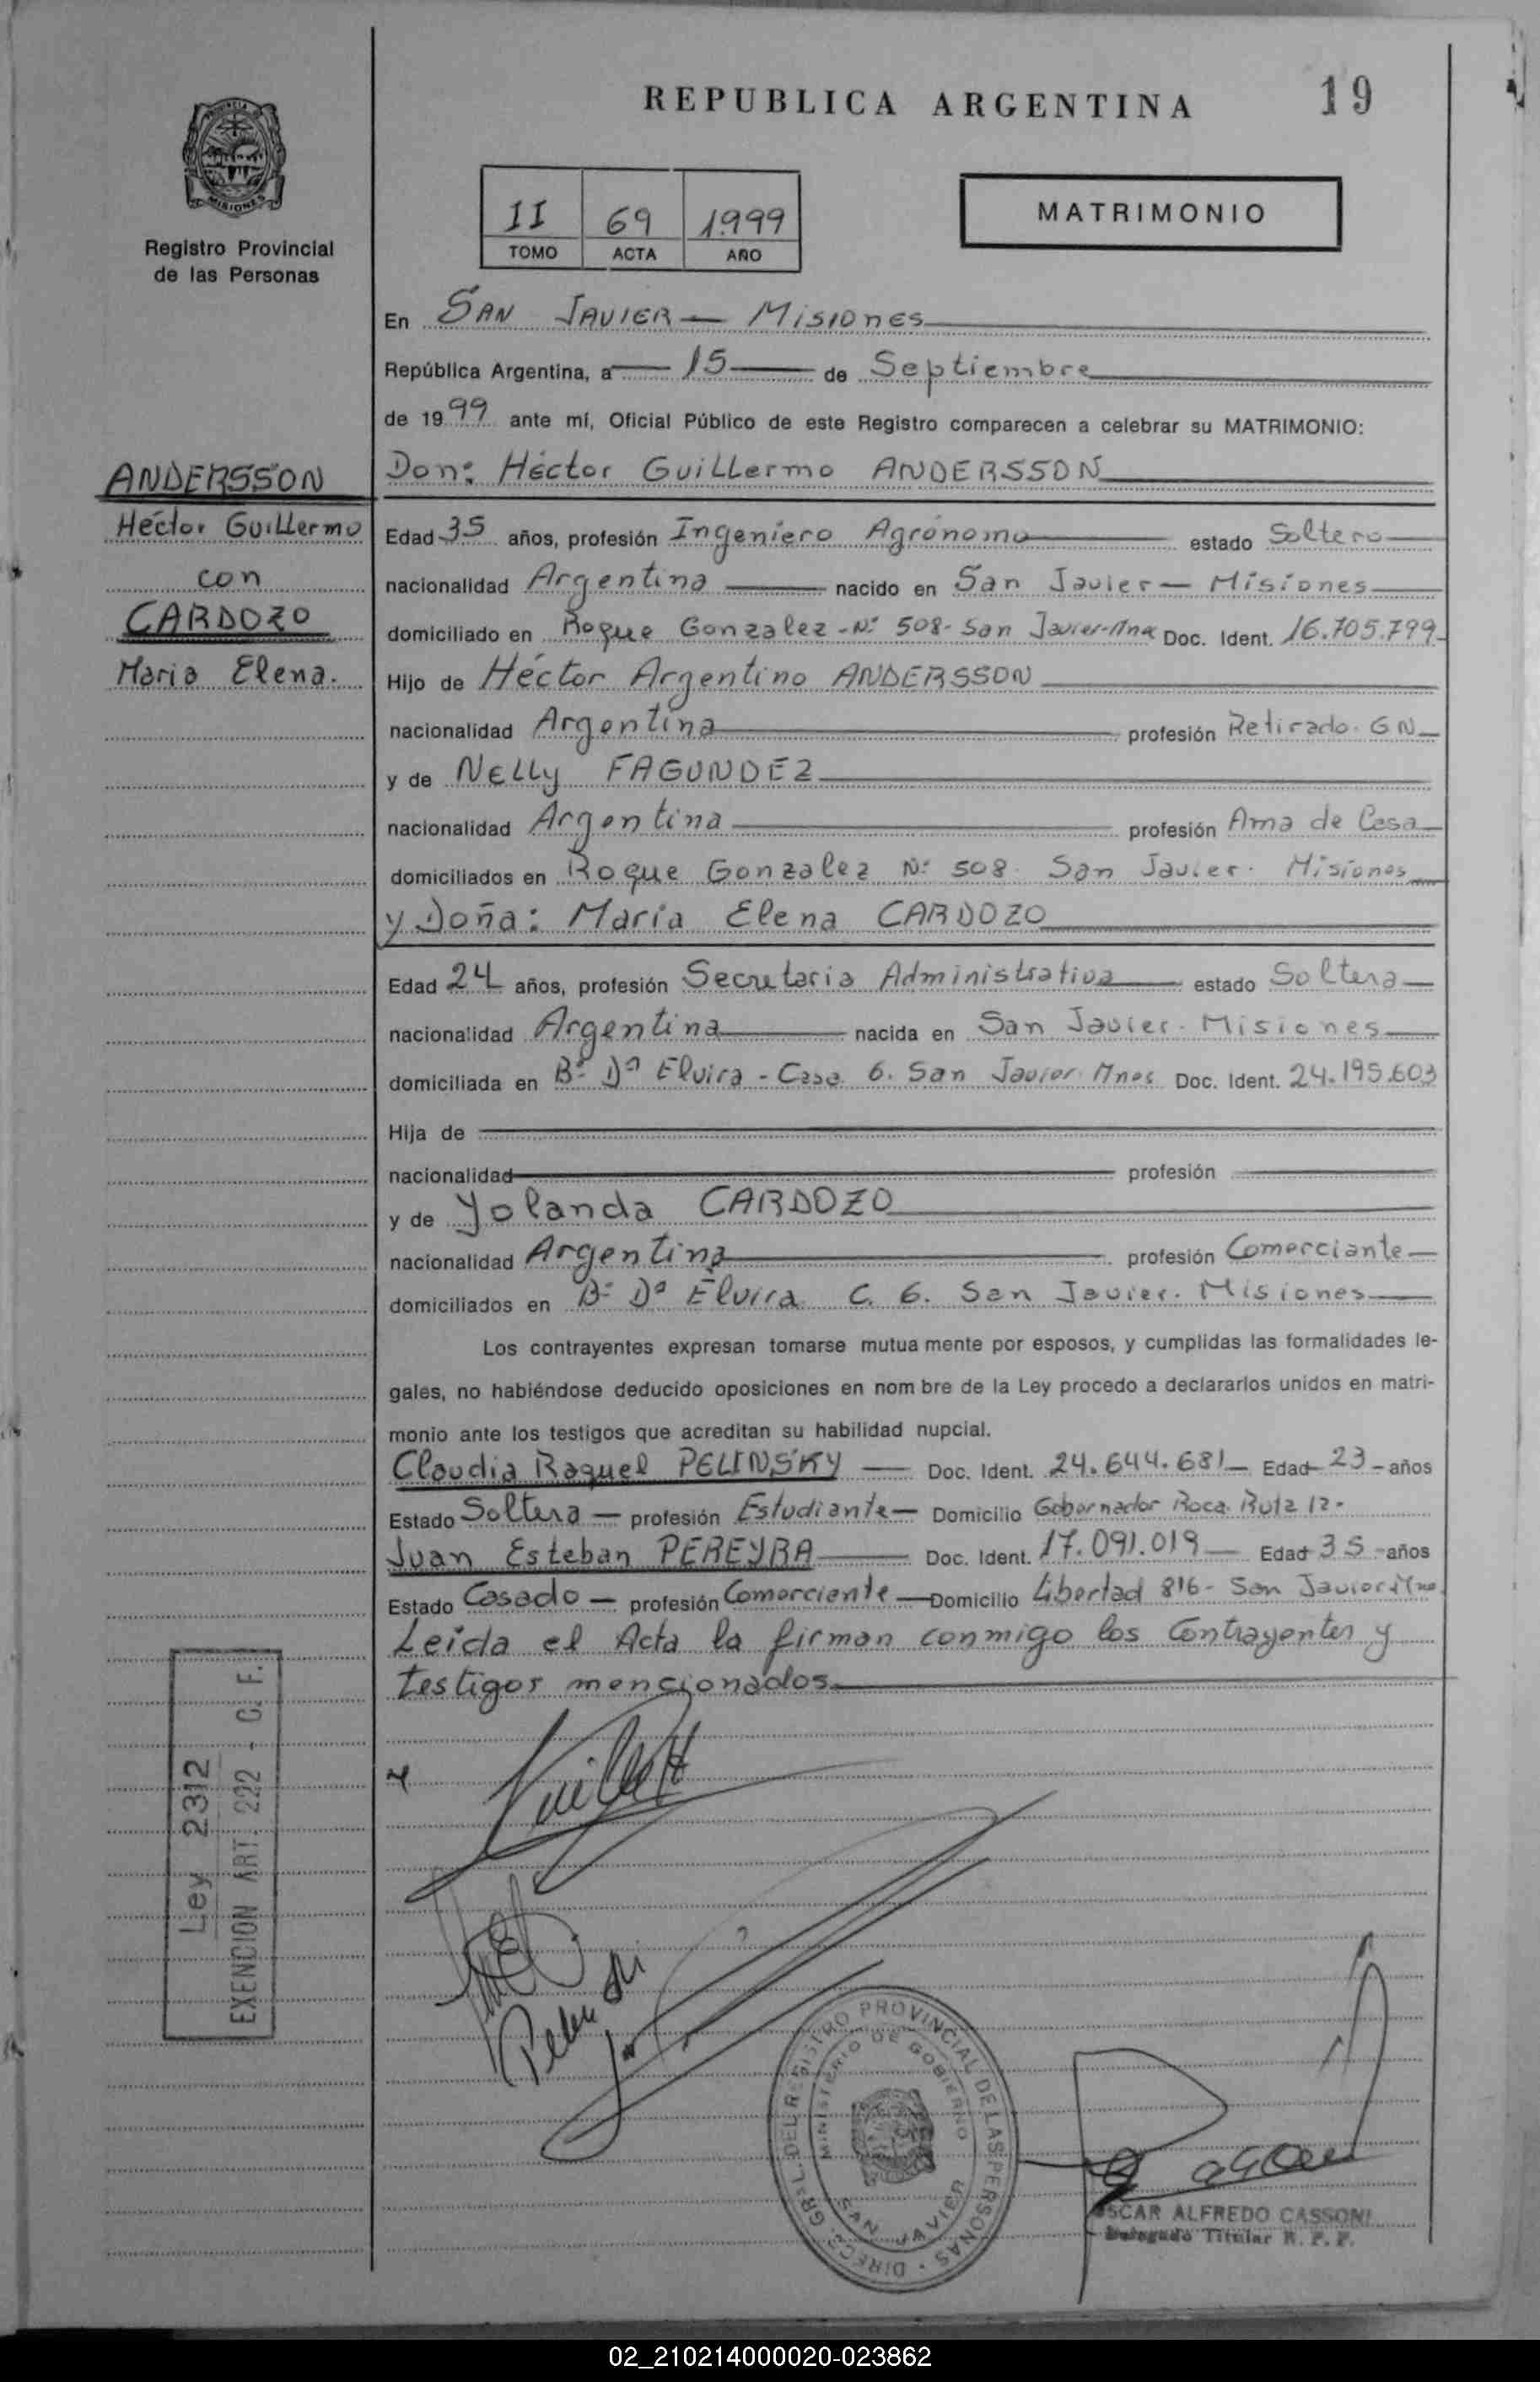 REPUBLICA ARGENTINA
19
MISIONES
Registro Provincial
de las Personas
II 69 1999
TOMO ACTA AÑO
MATRIMONIO
En SAN JAVIER — Misiones
República Argentina, a 15 de Septiembre
de 1999 ante mí, Oficial Público de este Registro comparecen a celebrar su MATRIMONIO:
Don: Héctor Guillermo ANDERSSON
ANDERSSON
Héctor Guillermo
con
CARDOZO
Maria Elena.
Edad 35 años, profesión Ingeniero Agrónomo estado Soltero
nacionalidad Argentina nacido en San Javier — Misiones
domiciliado en Roque Gonzalez - Nº 508 - San Javier - Mnes Doc. Ident. 16.705.799
Hijo de Héctor Argentino ANDERSSON
nacionalidad Argentina profesión Retirado GN
y de Nelly FAGUNDEZ
nacionalidad Argentina profesión Ama de Casa
domiciliados en Roque Gonzalez Nº 508 San Javier. Misiones
y Doña: María Elena CARDOZO
Edad 24 años, profesión Secretaria Administrativa estado Soltera
nacionalidad Argentina nacida en San Javier. Misiones
domiciliada en Bº Dª Elvira - Casa 6. San Javier Mnes Doc. Ident. 24.195.603
Hija de
nacionalidad profesión
y de Yolanda CARDOZO
nacionalidad Argentina profesión Comerciante
domiciliados en Bº Dª Elvira C. 6. San Javier. Misiones
Los contrayentes expresan tomarse mutua mente por esposos, y cumplidas las formalidades le-
gales, no habiéndose deducido oposiciones en nom bre de la Ley procedo a declararlos unidos en matri-
monio ante los testigos que acreditan su habilidad nupcial.
Claudia Raquel PELINSKY — Doc. Ident. 24.644.681 — Edad 23 años
Estado Soltera — profesión Estudiante — Domicilio Gobernador Roca. Ruta 12.
Juan Esteban PEREYRA — Doc. Ident. 17.091.019 — Edad 35 años
Estado Casado — profesión Comerciante — Domicilio Libertad 816 - San Javier
Leída el Acta la firman conmigo los Contrayentes y
testigos mencionados
Ley 2312
EXENCION ART. 222 - C. F.
DIRECC. GRAL. DEL REGISTRO PROVINCIAL DE LAS PERSONAS
MINISTERIO DE GOBIERNO
SAN JAVIER
OSCAR ALFREDO CASSONI
Delegado Titular R. P. P.
02_210214000020-023862